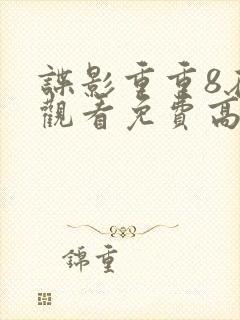 諜影重重8
觀看免費高
錦重